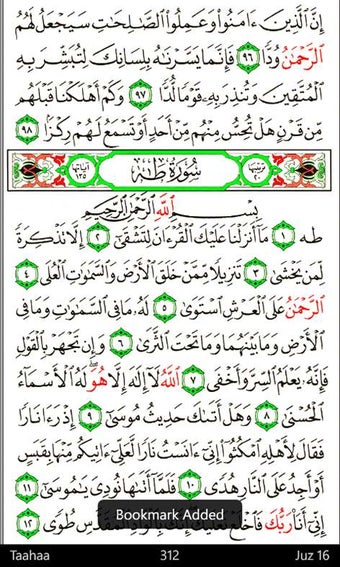 إِنَّ ٱلَّذِينَ ءَامَنُوا۟ وَعَمِلُوا۟ ٱلصَّٰلِحَٰتِ سَيَجْعَلُ لَهُمُ
ٱلرَّحْمَٰنُ وُدًّا ٩٦ فَإِنَّمَا يَسَّرْنَٰهُ بِلِسَانِكَ لِتُبَشِّرَ بِهِ
ٱلْمُتَّقِينَ وَتُنذِرَ بِهِۦ قَوْمًا لُّدًّا ٩٧ وَكَمْ أَهْلَكْنَا قَبْلَهُم
مِّن قَرْنٍ هَلْ تُحِسُّ مِنْهُم مِّنْ أَحَدٍ أَوْ تَسْمَعُ لَهُمْ رِكْزًۢا ٩٨
ترتيبها ٢٠ سُورَةُ طه آياتها ١٣٥
بِسْمِ ٱللَّهِ ٱلرَّحْمَٰنِ ٱلرَّحِيمِ
طه ١ مَآ أَنزَلْنَا عَلَيْكَ ٱلْقُرْءَانَ لِتَشْقَىٰٓ ٢ إِلَّا تَذْكِرَةً
لِّمَن يَخْشَىٰ ٣ تَنزِيلًا مِّمَّنْ خَلَقَ ٱلْأَرْضَ وَٱلسَّمَٰوَٰتِ ٱلْعُلَى ٤
ٱلرَّحْمَٰنُ عَلَى ٱلْعَرْشِ ٱسْتَوَىٰ ٥ لَهُۥ مَا فِى ٱلسَّمَٰوَٰتِ وَمَا فِى
ٱلْأَرْضِ وَمَا بَيْنَهُمَا وَمَا تَحْتَ ٱلثَّرَىٰ ٦ وَإِن تَجْهَرْ بِٱلْقَوْلِ
فَإِنَّهُۥ يَعْلَمُ ٱلسِّرَّ وَأَخْفَى ٧ ٱللَّهُ لَآ إِلَٰهَ إِلَّا هُوَ ۖ لَهُ ٱلْأَسْمَآءُ
ٱلْحُسْنَىٰ ٨ وَهَلْ أَتَىٰكَ حَدِيثُ مُوسَىٰٓ ٩ إِذْ رَءَا نَارًا
فَقَالَ لِأَهْلِهِ ٱمْكُثُوٓا۟ إِنِّىٓ ءَانَسْتُ نَارًا لَّعَلِّىٓ ءَاتِيكُم مِّنْهَا بِقَبَسٍ
أَوْ أَجِدُ عَلَى ٱلنَّارِ هُدًى ١٠ فَلَمَّآ أَتَىٰهَا نُودِىَ يَٰمُوسَىٰٓ ١١
إِنِّىٓ أَنَا۠ رَبُّكَ فَٱخْلَعْ نَعْلَيْكَ ۖ إِنَّكَ بِٱلْوَادِ ٱلْمُقَدَّسِ طُوًى ١٢
Bookmark Added
Taahaa 312 Juz 16